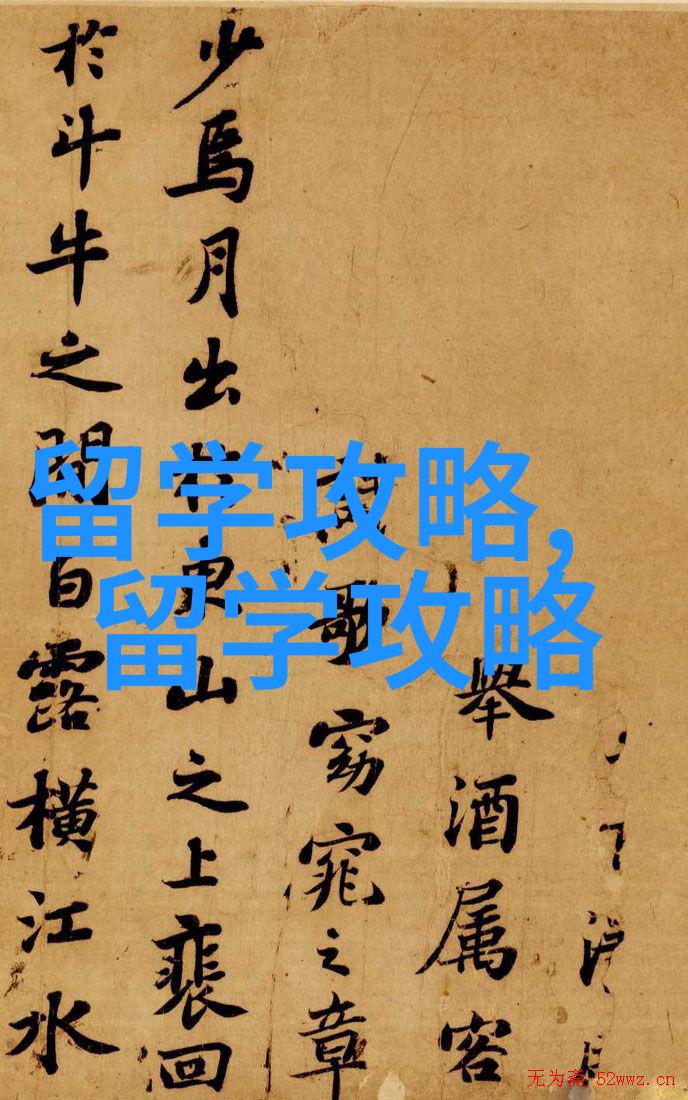 舉酒属客
歌窈窕之章
少焉月出於東山之上裴回
於斗牛之間白露橫江水
留学攻略,
留学攻略
无为斋 52wwz.cn